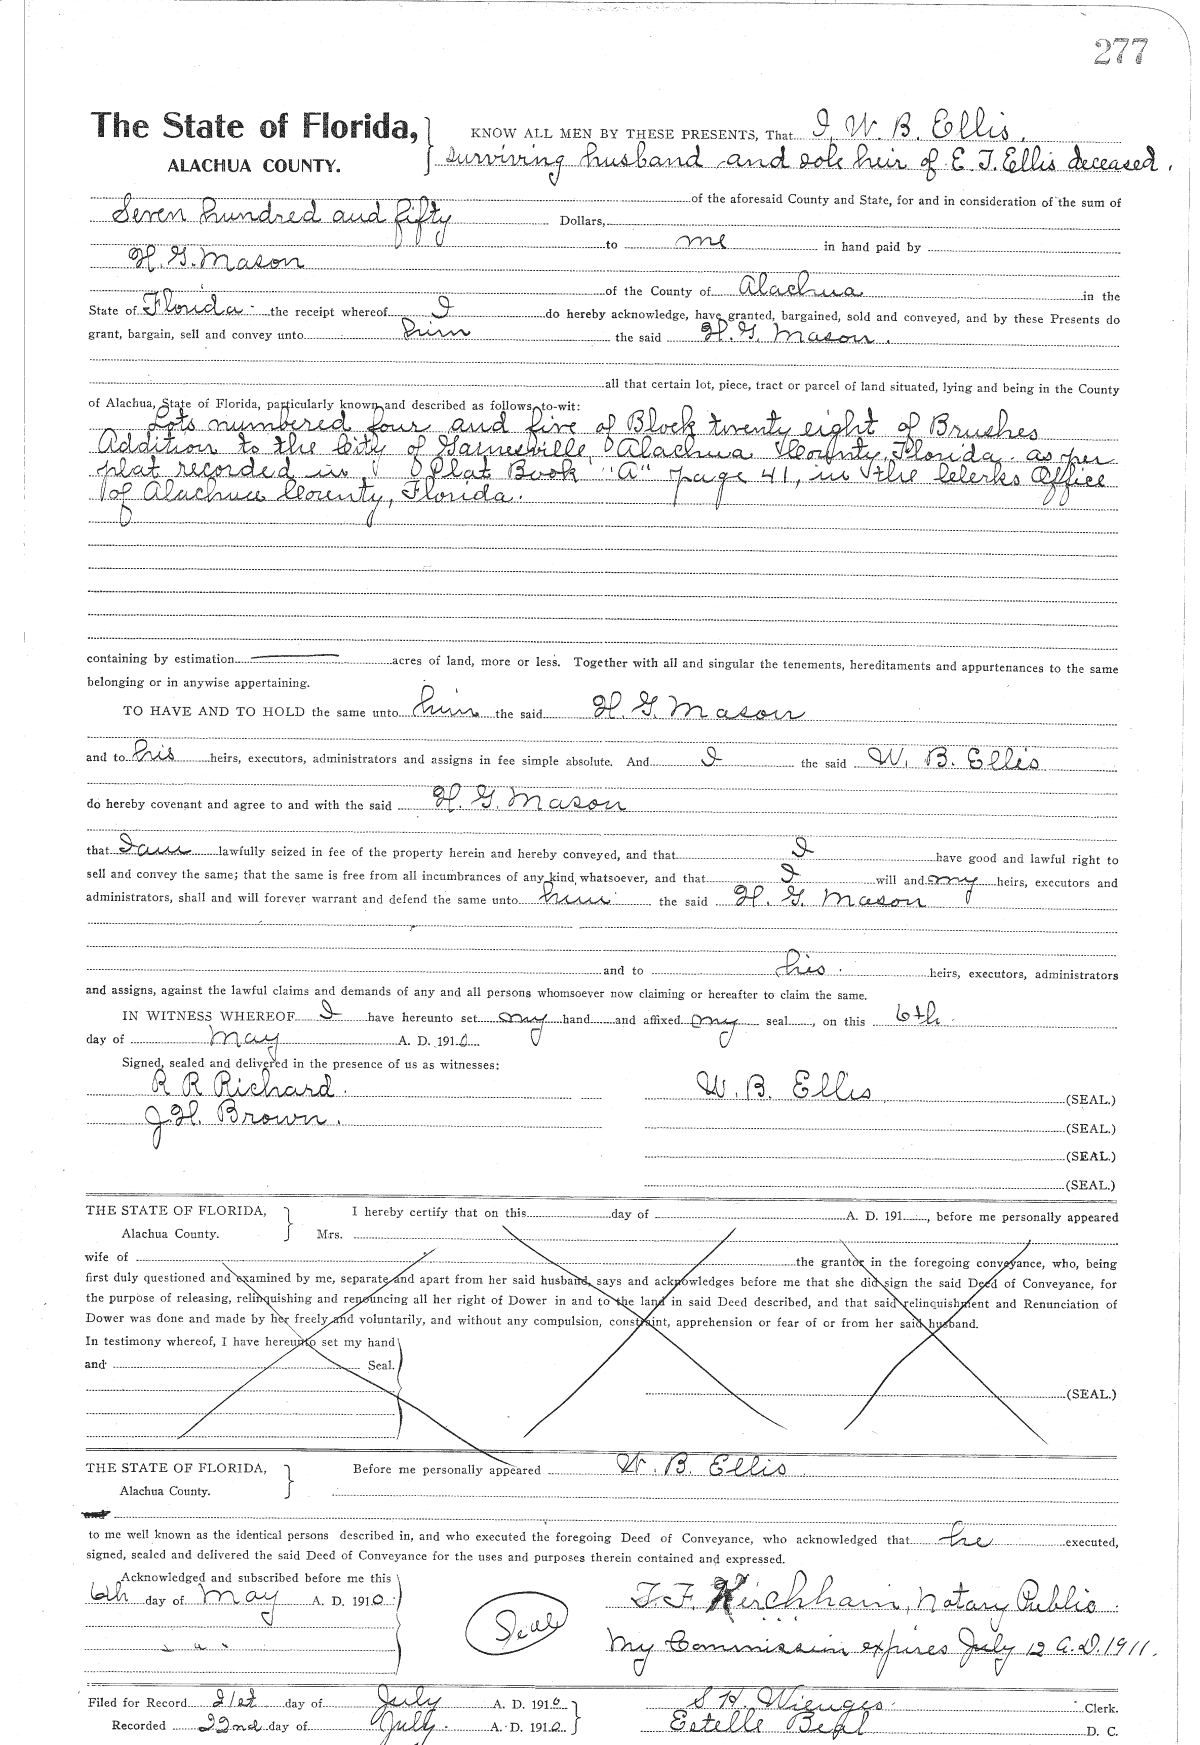 277
The State of Florida,
ALACHUA COUNTY.
KNOW ALL MEN BY THESE PRESENTS, That I, W. B. Ellis,
surviving husband and sole heir of E. T. Ellis deceased,
of the aforesaid County and State, for and in consideration of the sum of
Seven hundred and fifty Dollars,
to me in hand paid by
H. G. Mason
of the County of Alachua in the
State of Florida the receipt whereof I do hereby acknowledge, have granted, bargained, sold and conveyed, and by these Presents do
grant, bargain, sell and convey unto him the said H. G. Mason.
all that certain lot, piece, tract or parcel of land situated, lying and being in the County
of Alachua, State of Florida, particularly known and described as follows, to-wit:
Lots numbered four and five of Block twenty eight of Brushes
Addition to the City of Gainesville, Alachua County, Florida. as per
plat recorded in Plat Book "A" page 41, in the Clerks Office
of Alachua County, Florida.
containing by estimation acres of land, more or less. Together with all and singular the tenements, hereditaments and appurtenances to the same
belonging or in anywise appertaining.
TO HAVE AND TO HOLD the same unto him the said H. G. Mason
and to his heirs, executors, administrators and assigns in fee simple absolute. And I the said W. B. Ellis
do hereby covenant and agree to and with the said H. G. Mason
that I am lawfully seized in fee of the property herein and hereby conveyed, and that I have good and lawful right to
sell and convey the same; that the same is free from all incumbrances of any kind whatsoever, and that I will and my heirs, executors and
administrators, shall and will forever warrant and defend the same unto him the said H. G. Mason
and to his heirs, executors, administrators
and assigns, against the lawful claims and demands of any and all persons whomsoever now claiming or hereafter to claim the same.
IN WITNESS WHEREOF I have hereunto set my hand and affixed my seal, on this 6th
day of May A. D. 1910.
Signed, sealed and delivered in the presence of us as witnesses:
R R Richard.
W. B. Ellis (SEAL.)
J. H. Brown.
(SEAL.)
(SEAL.)
(SEAL.)
THE STATE OF FLORIDA,
Alachua County.
I hereby certify that on this day of A. D. 191 , before me personally appeared
Mrs.
wife of the grantor in the foregoing conveyance, who, being
first duly questioned and examined by me, separate and apart from her said husband, says and acknowledges before me that she did sign the said Deed of Conveyance, for
the purpose of releasing, relinquishing and renouncing all her right of Dower in and to the land in said Deed described, and that said relinquishment and Renunciation of
Dower was done and made by her freely and voluntarily, and without any compulsion, constraint, apprehension or fear of or from her said husband.
In testimony whereof, I have hereunto set my hand
and Seal.
(SEAL.)
THE STATE OF FLORIDA,
Alachua County.
Before me personally appeared W. B. Ellis
to me well known as the identical persons described in, and who executed the foregoing Deed of Conveyance, who acknowledged that he executed,
signed, sealed and delivered the said Deed of Conveyance for the uses and purposes therein contained and expressed.
Acknowledged and subscribed before me this
6th day of May A. D. 1910
Seal
T. F. Kirchhain, Notary Public.
My Commission expires July 12 A. D. 1911.
Filed for Record 21st day of July A. D. 1910
S H. Wienges Clerk.
Recorded 22nd day of July A. D. 1910.
Estelle D. C.